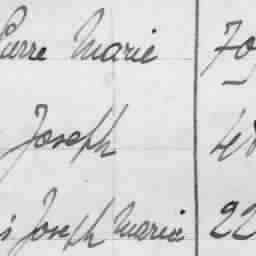 Pierre Marie 70
Joseph 48
s Joseph Marie 22